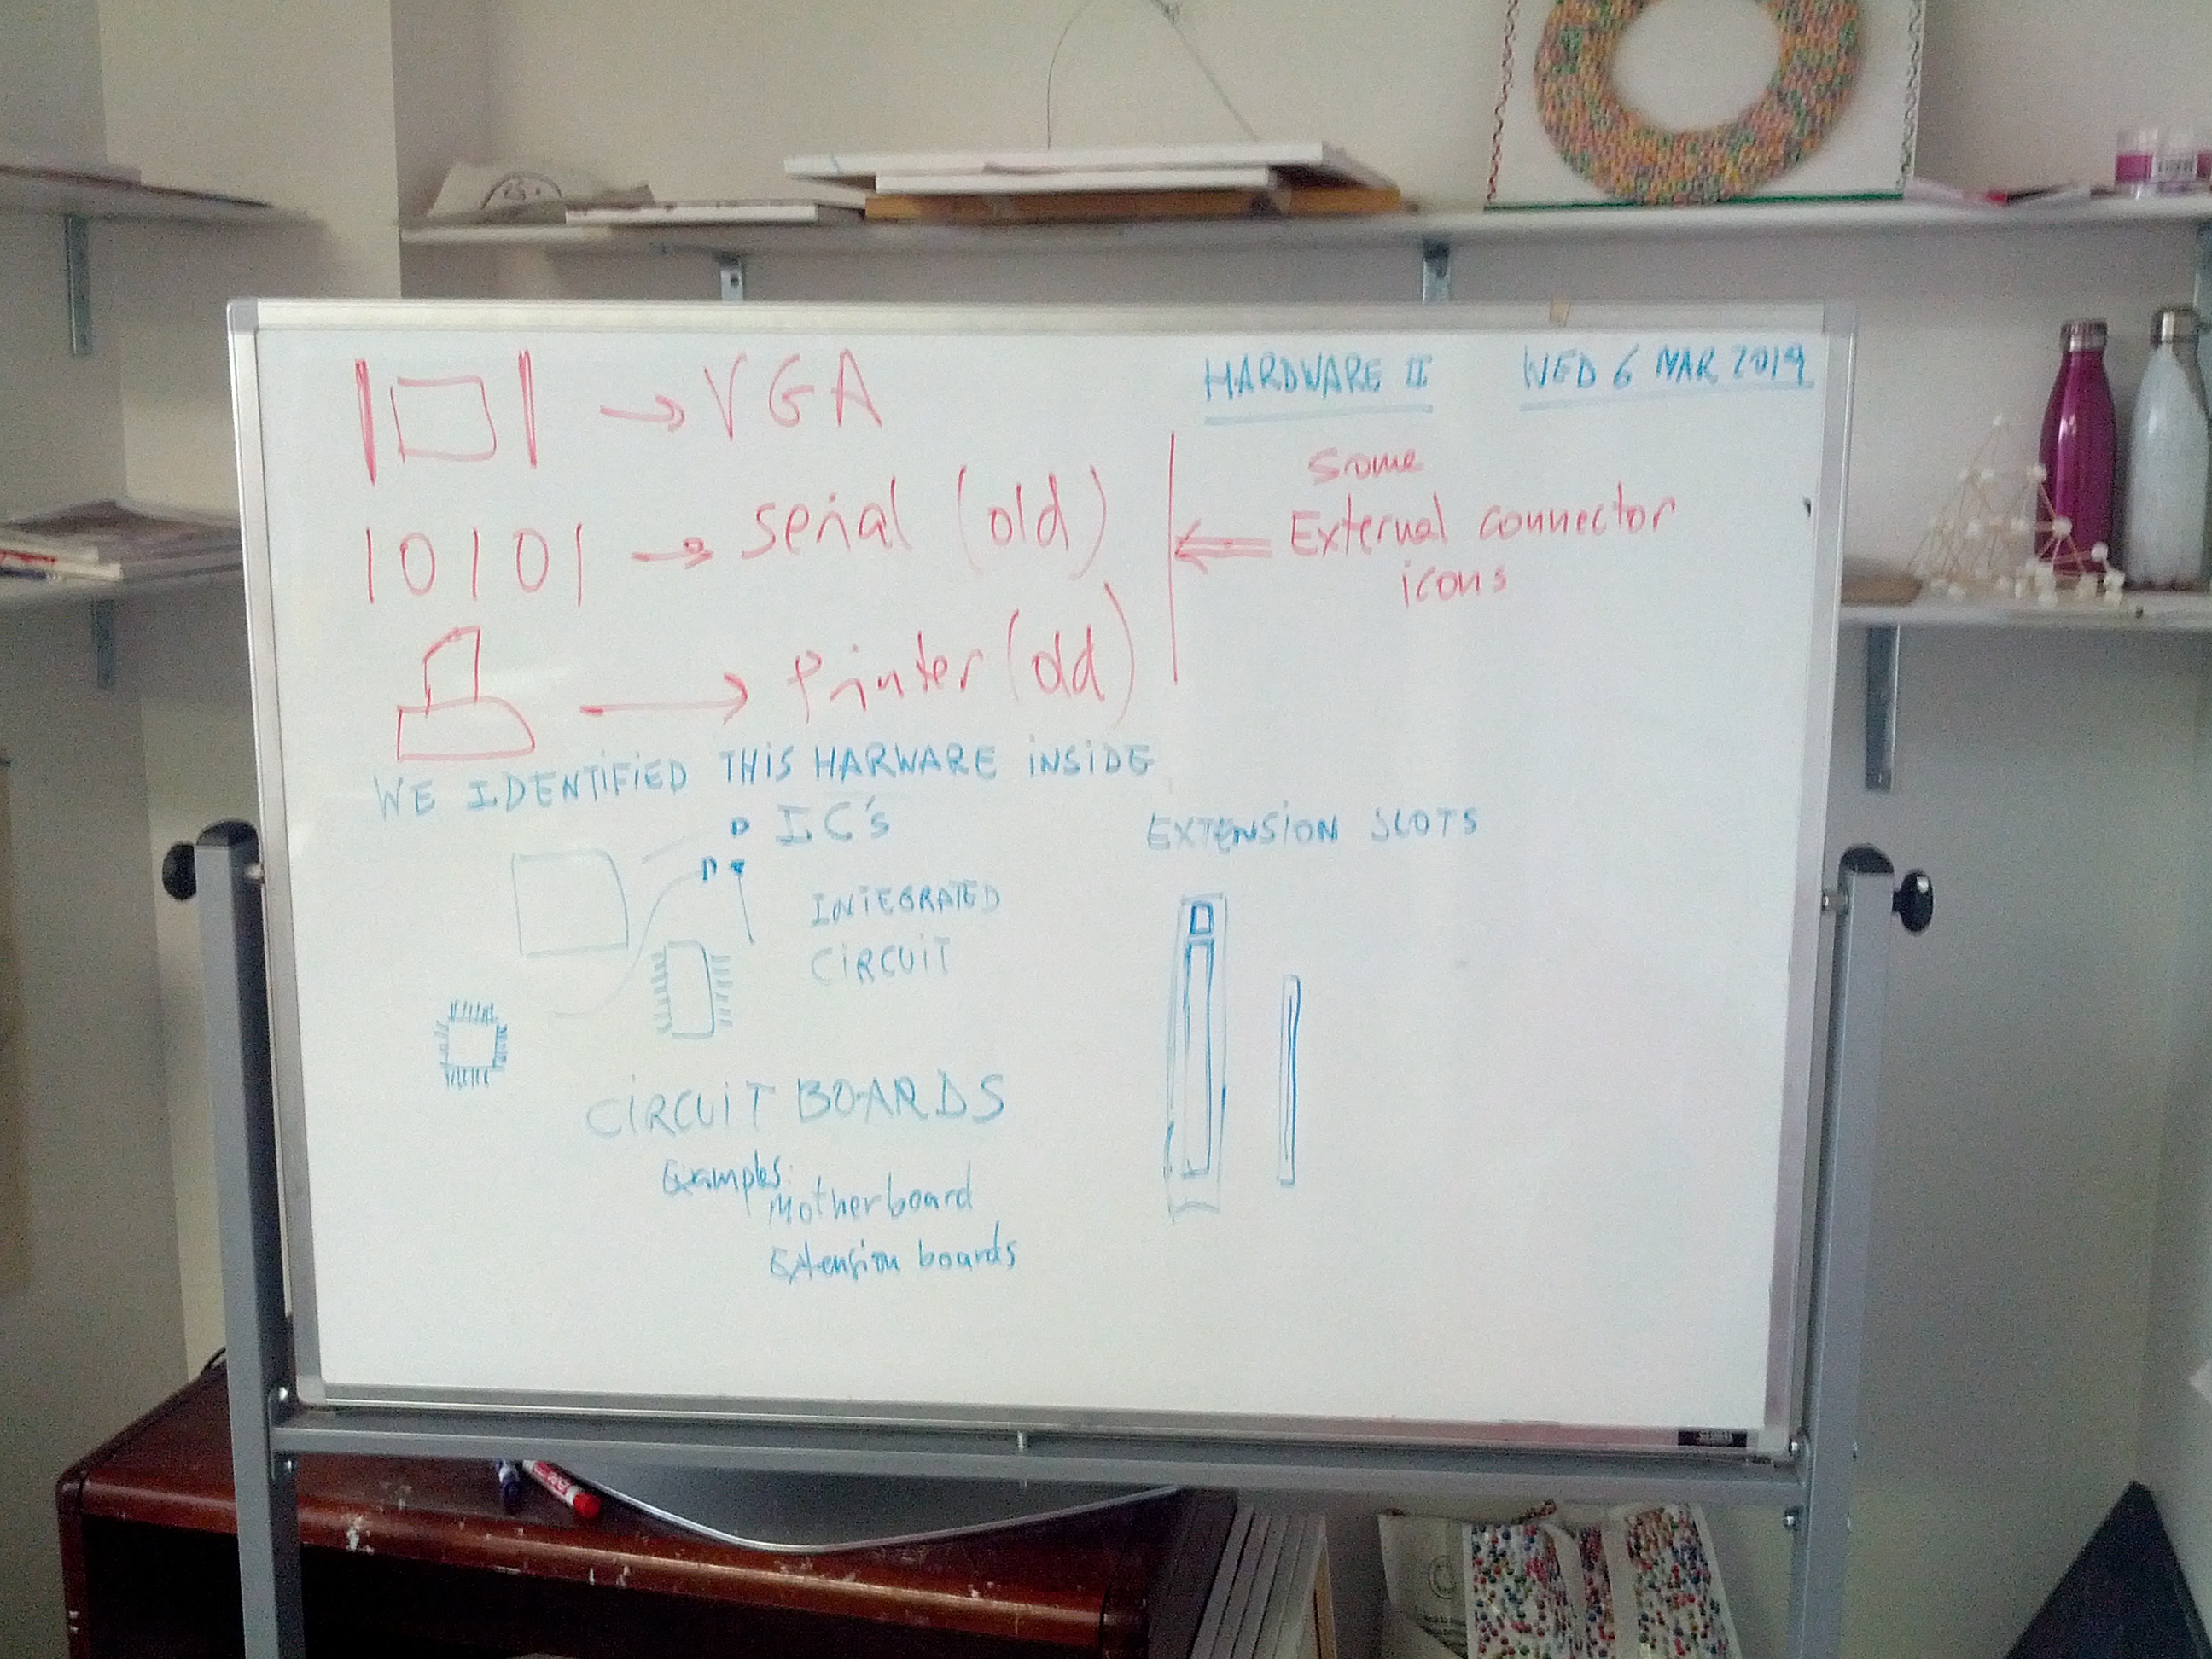 HARDWARE II WED 6 MAR 2019
→ VGA
10101 → serial (old)
→ Printer (old)
some
External connector
icons
WE IDENTIFIED THIS HARWARE INSIDE
I.C's
INTEGRATED
CIRCUIT
CIRCUIT BOARDS
Examples:
Motherboard
Extension boards
EXTENSION SLOTS